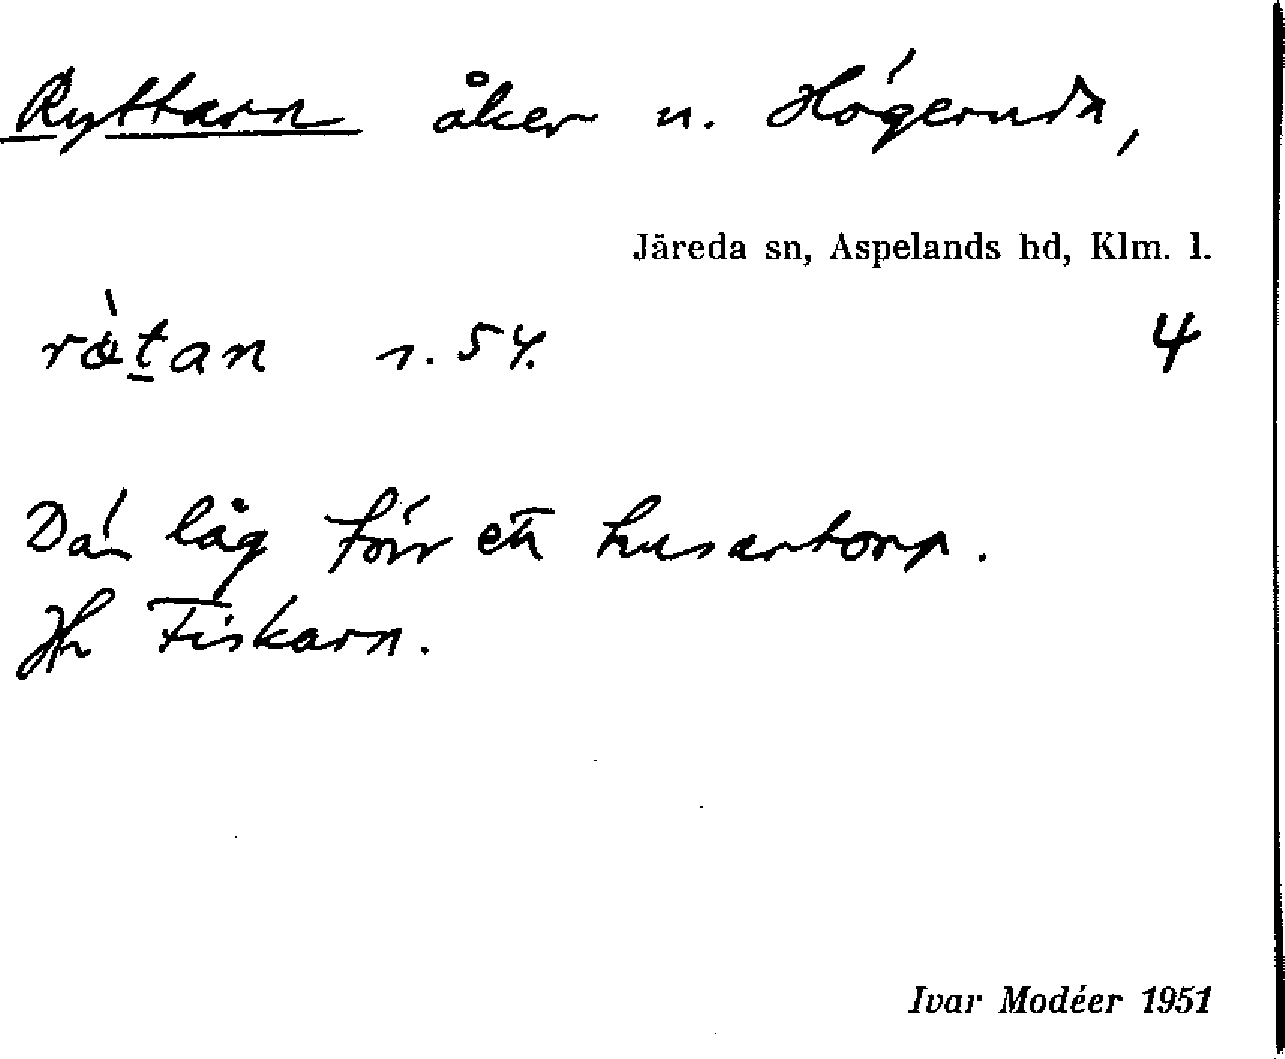 Ryttarn åker u. Högeruda,
Järeda sn, Aspelands hd, Klm. l.
ròtan s. 54. 4
Där låg förr ett husartorp.
Jfr Fiskarn.
Ivar Modéer 1951